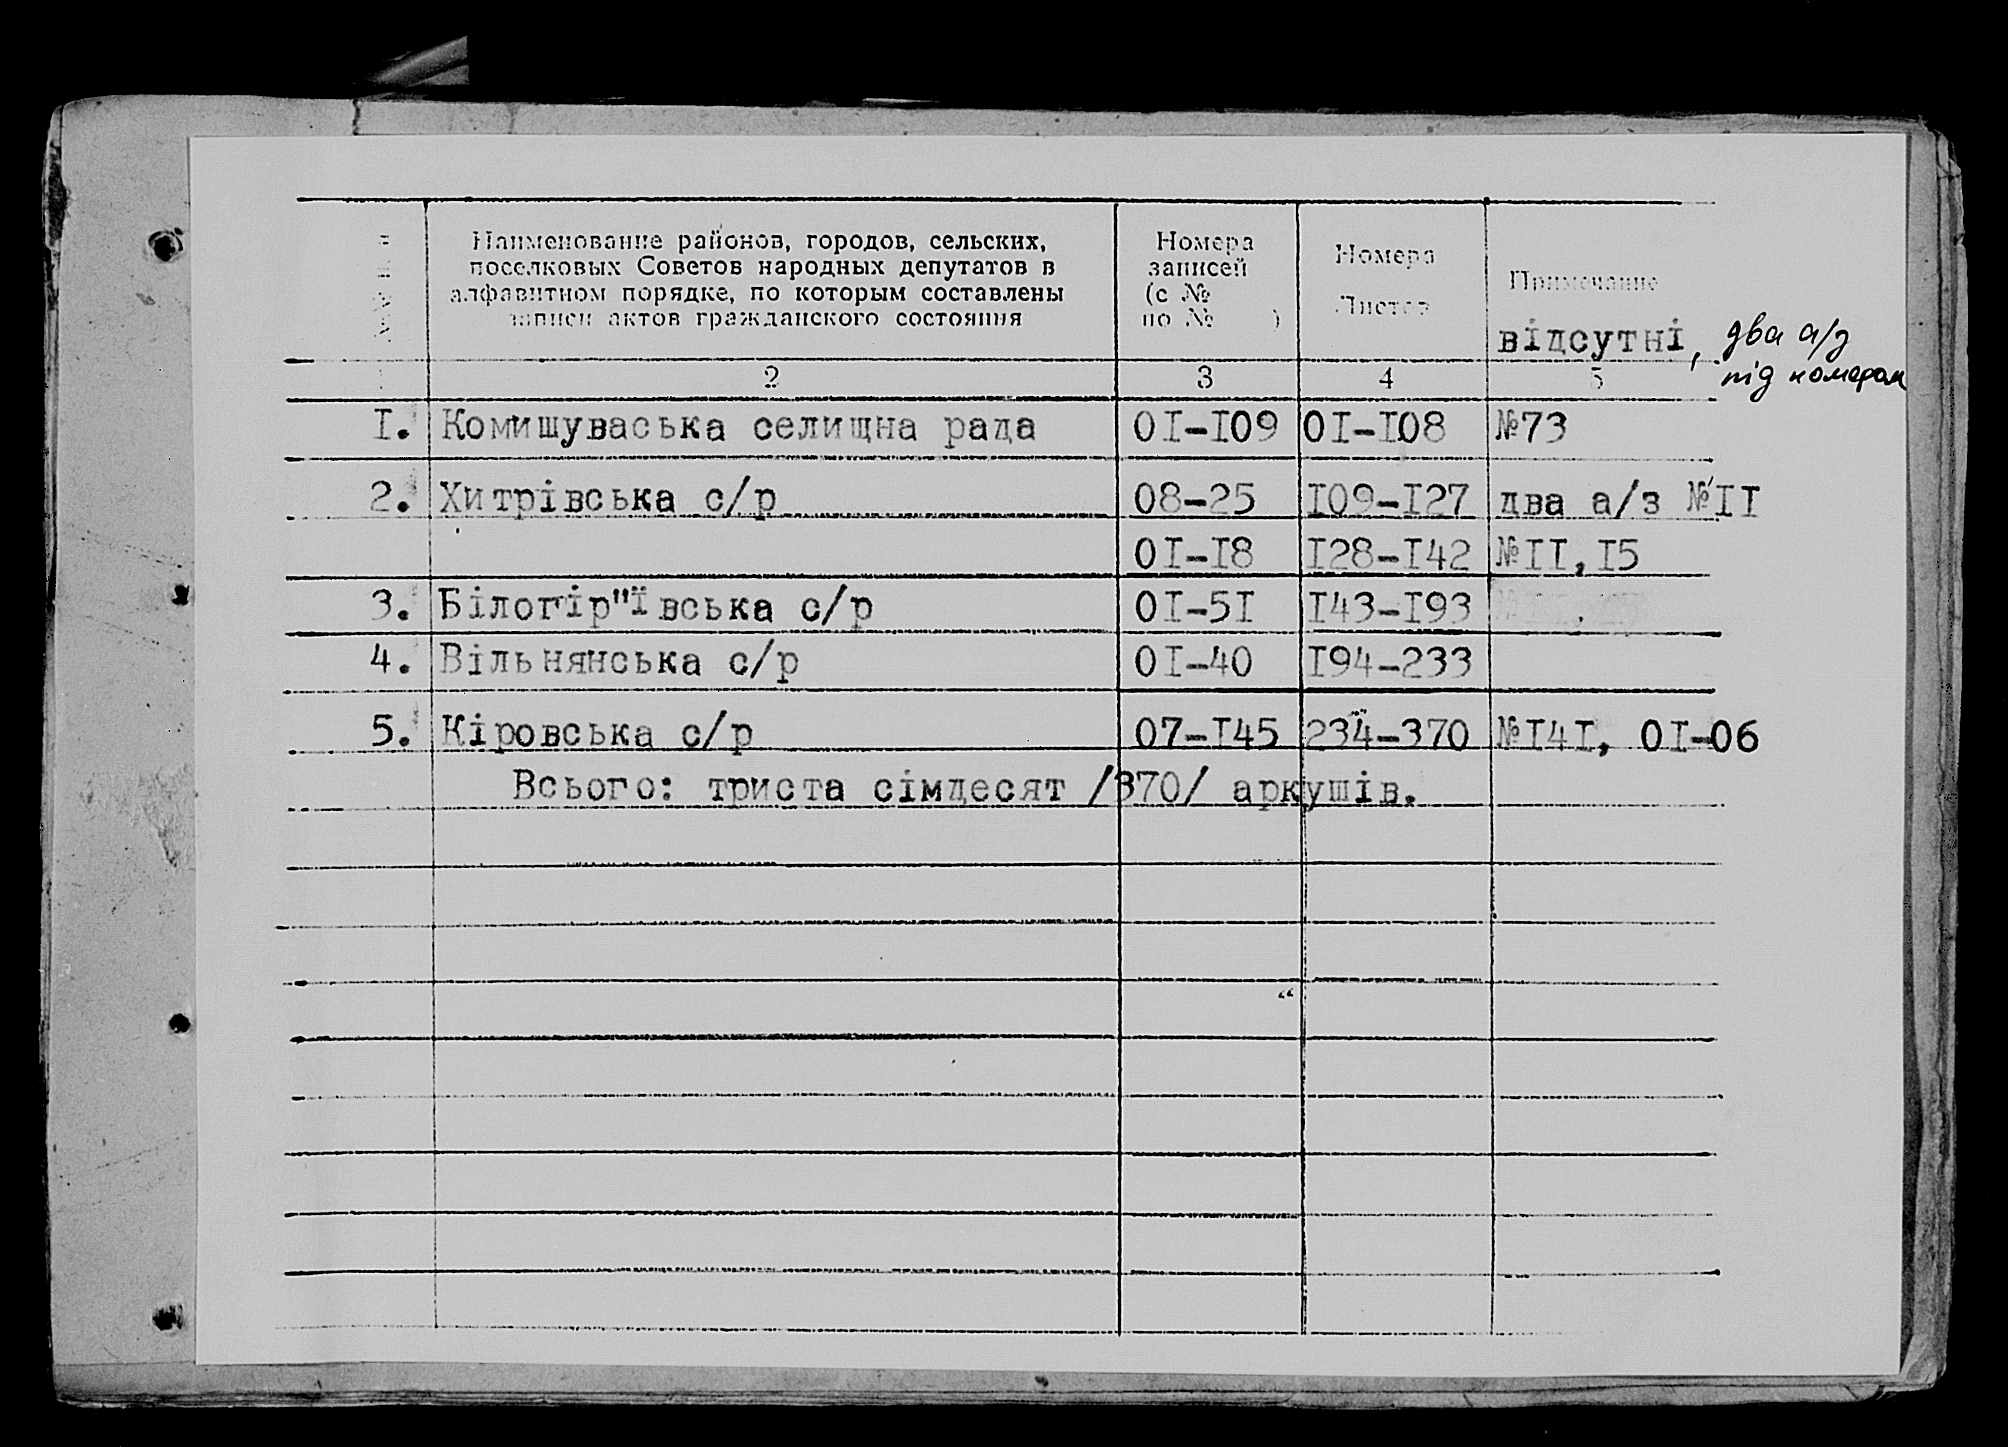 Наименование районов, городов, сельских,
поселковых Советов народных депутатов в
алфавитном порядке, по которым составлены
записи актов гражданского состояния
Номера
записей
(с №
по № )
Номера
Листов
Примечание
відсутні, два а/з
під номером
2 3 4 5
I. Комишуваська селищна рада 0I-I09 0I-I08 №73
2. Хитрівська с/р 08-25 I09-I27 два а/з №II
0I-I8 I28-I42 №II,I5
3. Білогір"ївська с/р 0I-5I I43-I93
4. Вільнянська с/р 0I-40 I94-233
5. Кіровська с/р 07-I45 234-370 №I4I, 0I-06
Всього: триста сімдесят /370/ аркушів.